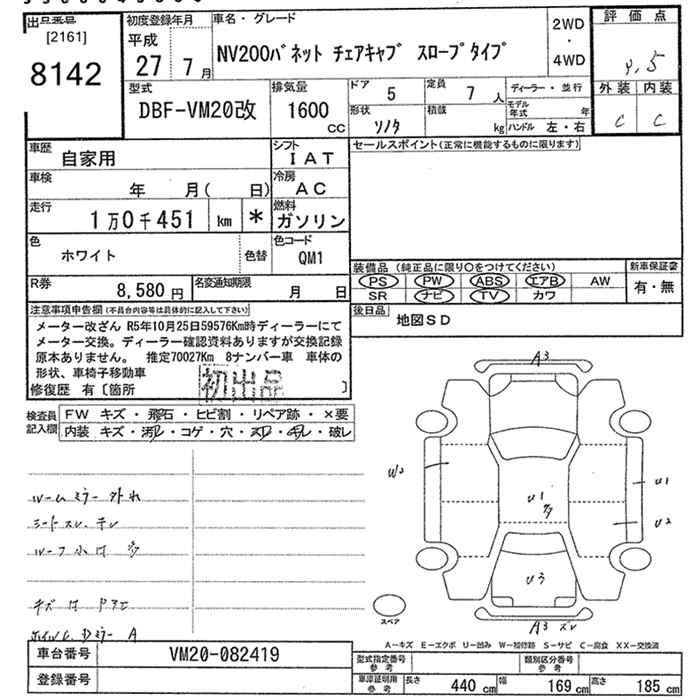 出品番号
[2161]
8142
初度登録年月
平成
27 7月
車名・グレード
NV200バネット チェアキャブ スロープタイプ
2WD
・
4WD
評価点
4.5
外装 内装
C C
型式
DBF-VM20改
排気量
1600
CC
ドア
5
定員
7人
ディーラー・並行
形状
バン
積載
kg
モデル年式 年
ハンドル 左・右
車歴
自家用
シフト
IAT
セールスポイント(正常に機能するものに限ります)
車検
年 月( 日)
冷房
AC
走行
1万0千451 km *
燃料
ガソリン
色
ホワイト
色替
色コード
QM1
装備品 (純正品に限り○をつけてください)
新車保証書
PS PW ABS エアB AW
有・無
SR ナビ TV カワ
R券
8,580円
名変通知期限
月 日
後日品
地図SD
注意事項申告欄(不具合内容等は具体的に記入して下さい)
メーター改ざん R5年10月25日59576Km時ディーラーにて
メーター交換。ディーラー確認資料ありますが交換記録
原本ありません。 推定70027Km 8ナンバー車 車体の
形状、車椅子移動車
初出品
修復歴 有〔箇所 〕
検査員記入欄
FW キズ・飛石・ヒビ割・リペア跡・×要
内装 キズ・汚レ・コゲ・穴・スレ・キレ・破レ
ルームミラー外れ
シートスレ、キレ
ルーフ小凹 多
キズ凹 ドア
ホイルC、Dミラー A
A3
W2
U1
U1
多
U2
U3
A3 スレ
スペア
A-キズ E-エクボ U-凹み W-補修跡 S-サビ C-腐食 XX-交換済
車台番号
VM20-082419
登録番号
型式指定番号
参考
類別区分番号
参考
車庫証明用
参考
長さ 440 cm 幅 169 cm 高さ 185 cm